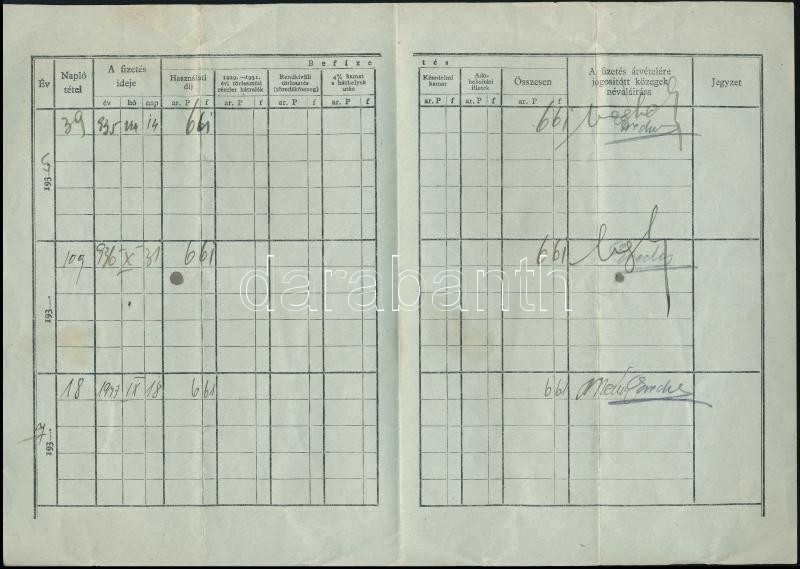 Befize tés
Év
Napló tétel
A fizetés ideje
év hó nap
Használati díj
ar. P f
1929.—1931. évi törlesztési részlet hátralék
ar. P f
Rendkívüli törlesztés (töredékösszeg)
ar. P f
4% kamat a házhelyek után
ar. P f
Késedelmi kamat
ar. P f
Adóbehajtási illeték
ar. P f
Összesen
ar. P f
A fizetés átvételére jogosított közegek névaláírása
Jegyzet
1935
39 935 14 6 61 6 61
193
109 936 X 31 6 61 6 61
darabanth
1937
18 1937 IX 18 6 61 6 61